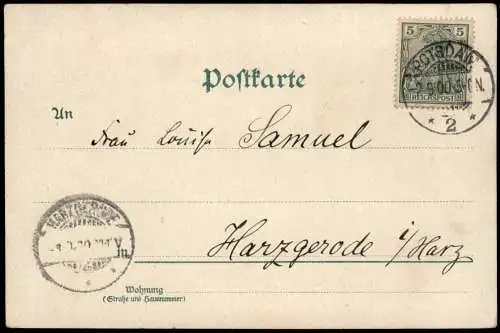 5 5
REICHSPOST
POTSDAM
* 2 *
Postkarte
An
Frau Louise Samuel
HARZGERODE
in
Harzgerode i/Harz
Wohnung
(Straße und Hausnummer)